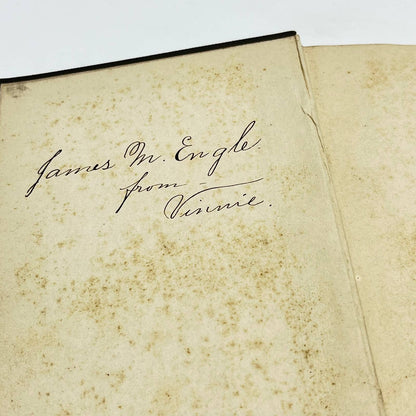 James M. Engle.
from
Vinnie.